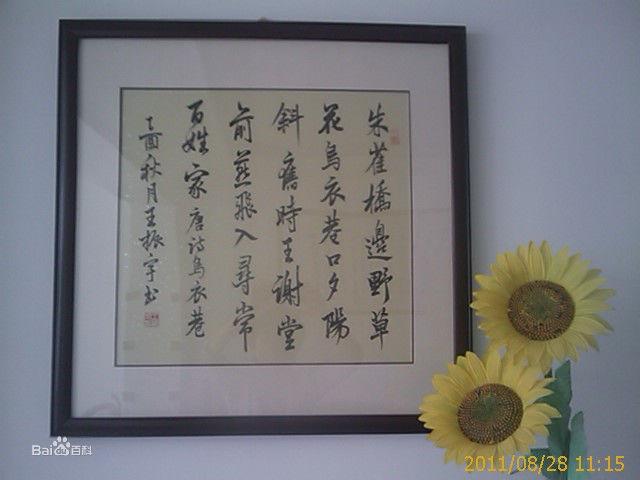 朱雀橋邊野草
花烏衣巷口夕陽
斜舊時王謝堂
前燕飛入尋常
百姓家唐詩烏衣巷
乙酉秋月王振宇书
Bai百科
2011/08/28 11:15